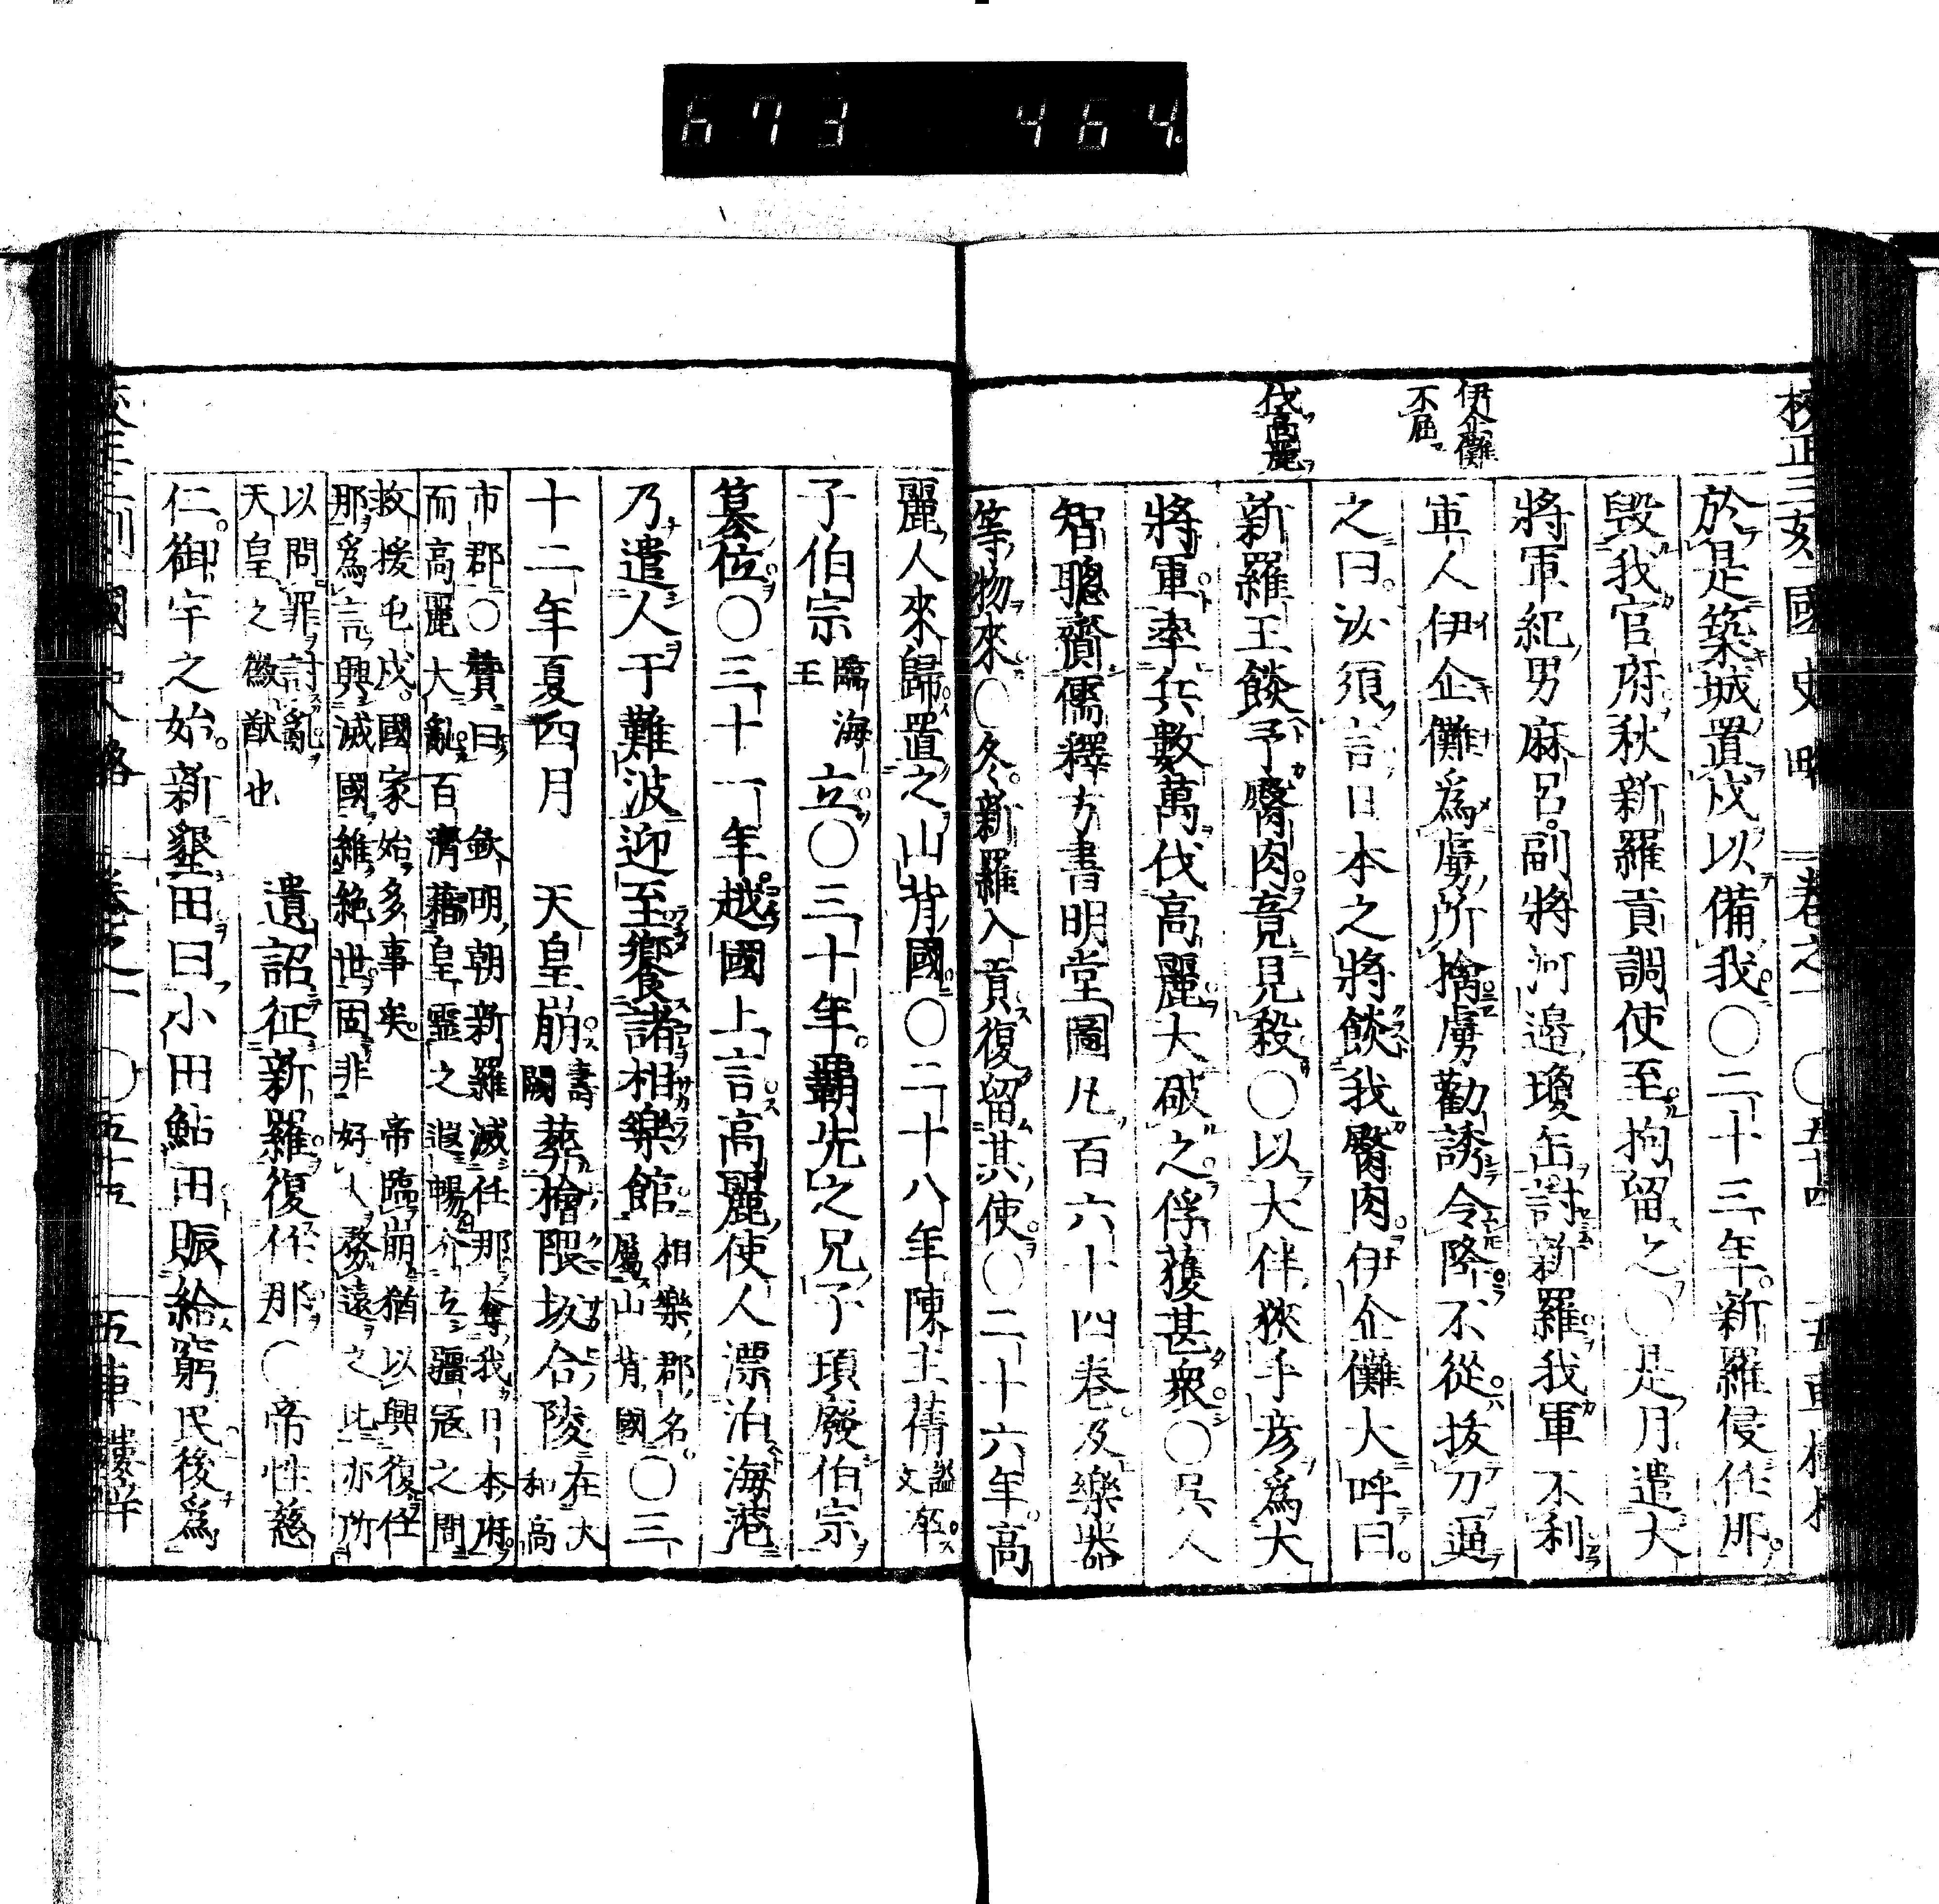 673 464
伊企儺
不屈
伐高麗
於是築城置戍以備我〇二十三年新羅侵任那
毀我官府秋新羅貢調使至拘留之〇是月遣大
將軍紀男麻呂副將河邉瓊缶討新羅我軍不利
軍人伊企儺為虜所擒虜勸誘令降不從拔刀逼
之曰汝須言日本之將餤我臀肉伊企儺大呼曰
新羅王餤予臀肉竟見殺〇以大伴狹手彦為大
將軍率兵數萬伐高麗大破之俘獲甚衆〇呉人
智聰齎儒釋方書明堂圖凡百六十四巻及樂器
等物來〇冬新羅入貢復留其使〇二十六年高
麗人來歸置之山背國〇二十八年陳主蒨殂諡文
子伯宗臨海王立〇三十年覇先之兄子頊廢伯宗
簒位〇三十一年越國上言高麗使人漂泊海港
乃遣人于難波迎至饗諸相樂館相樂郡名屬山背國〇三
十二年夏四月 天皇崩壽闕葬檜隈坂合陵在大和高
市郡〇賛曰 欽明朝新羅滅任那奪我日本府
而高麗大亂百濟藉皇靈之遐暢介立疆寇之間
救援屯戍國家始多事矣 帝臨崩猶以興復任
那爲言興滅國繼絶世固非好人務遠之比亦所
以問罪討亂
天皇之徽猷也 遺詔征新羅復任那〇帝性慈
仁御宇之始新墾田曰小田鮎田賑給窮民後爲